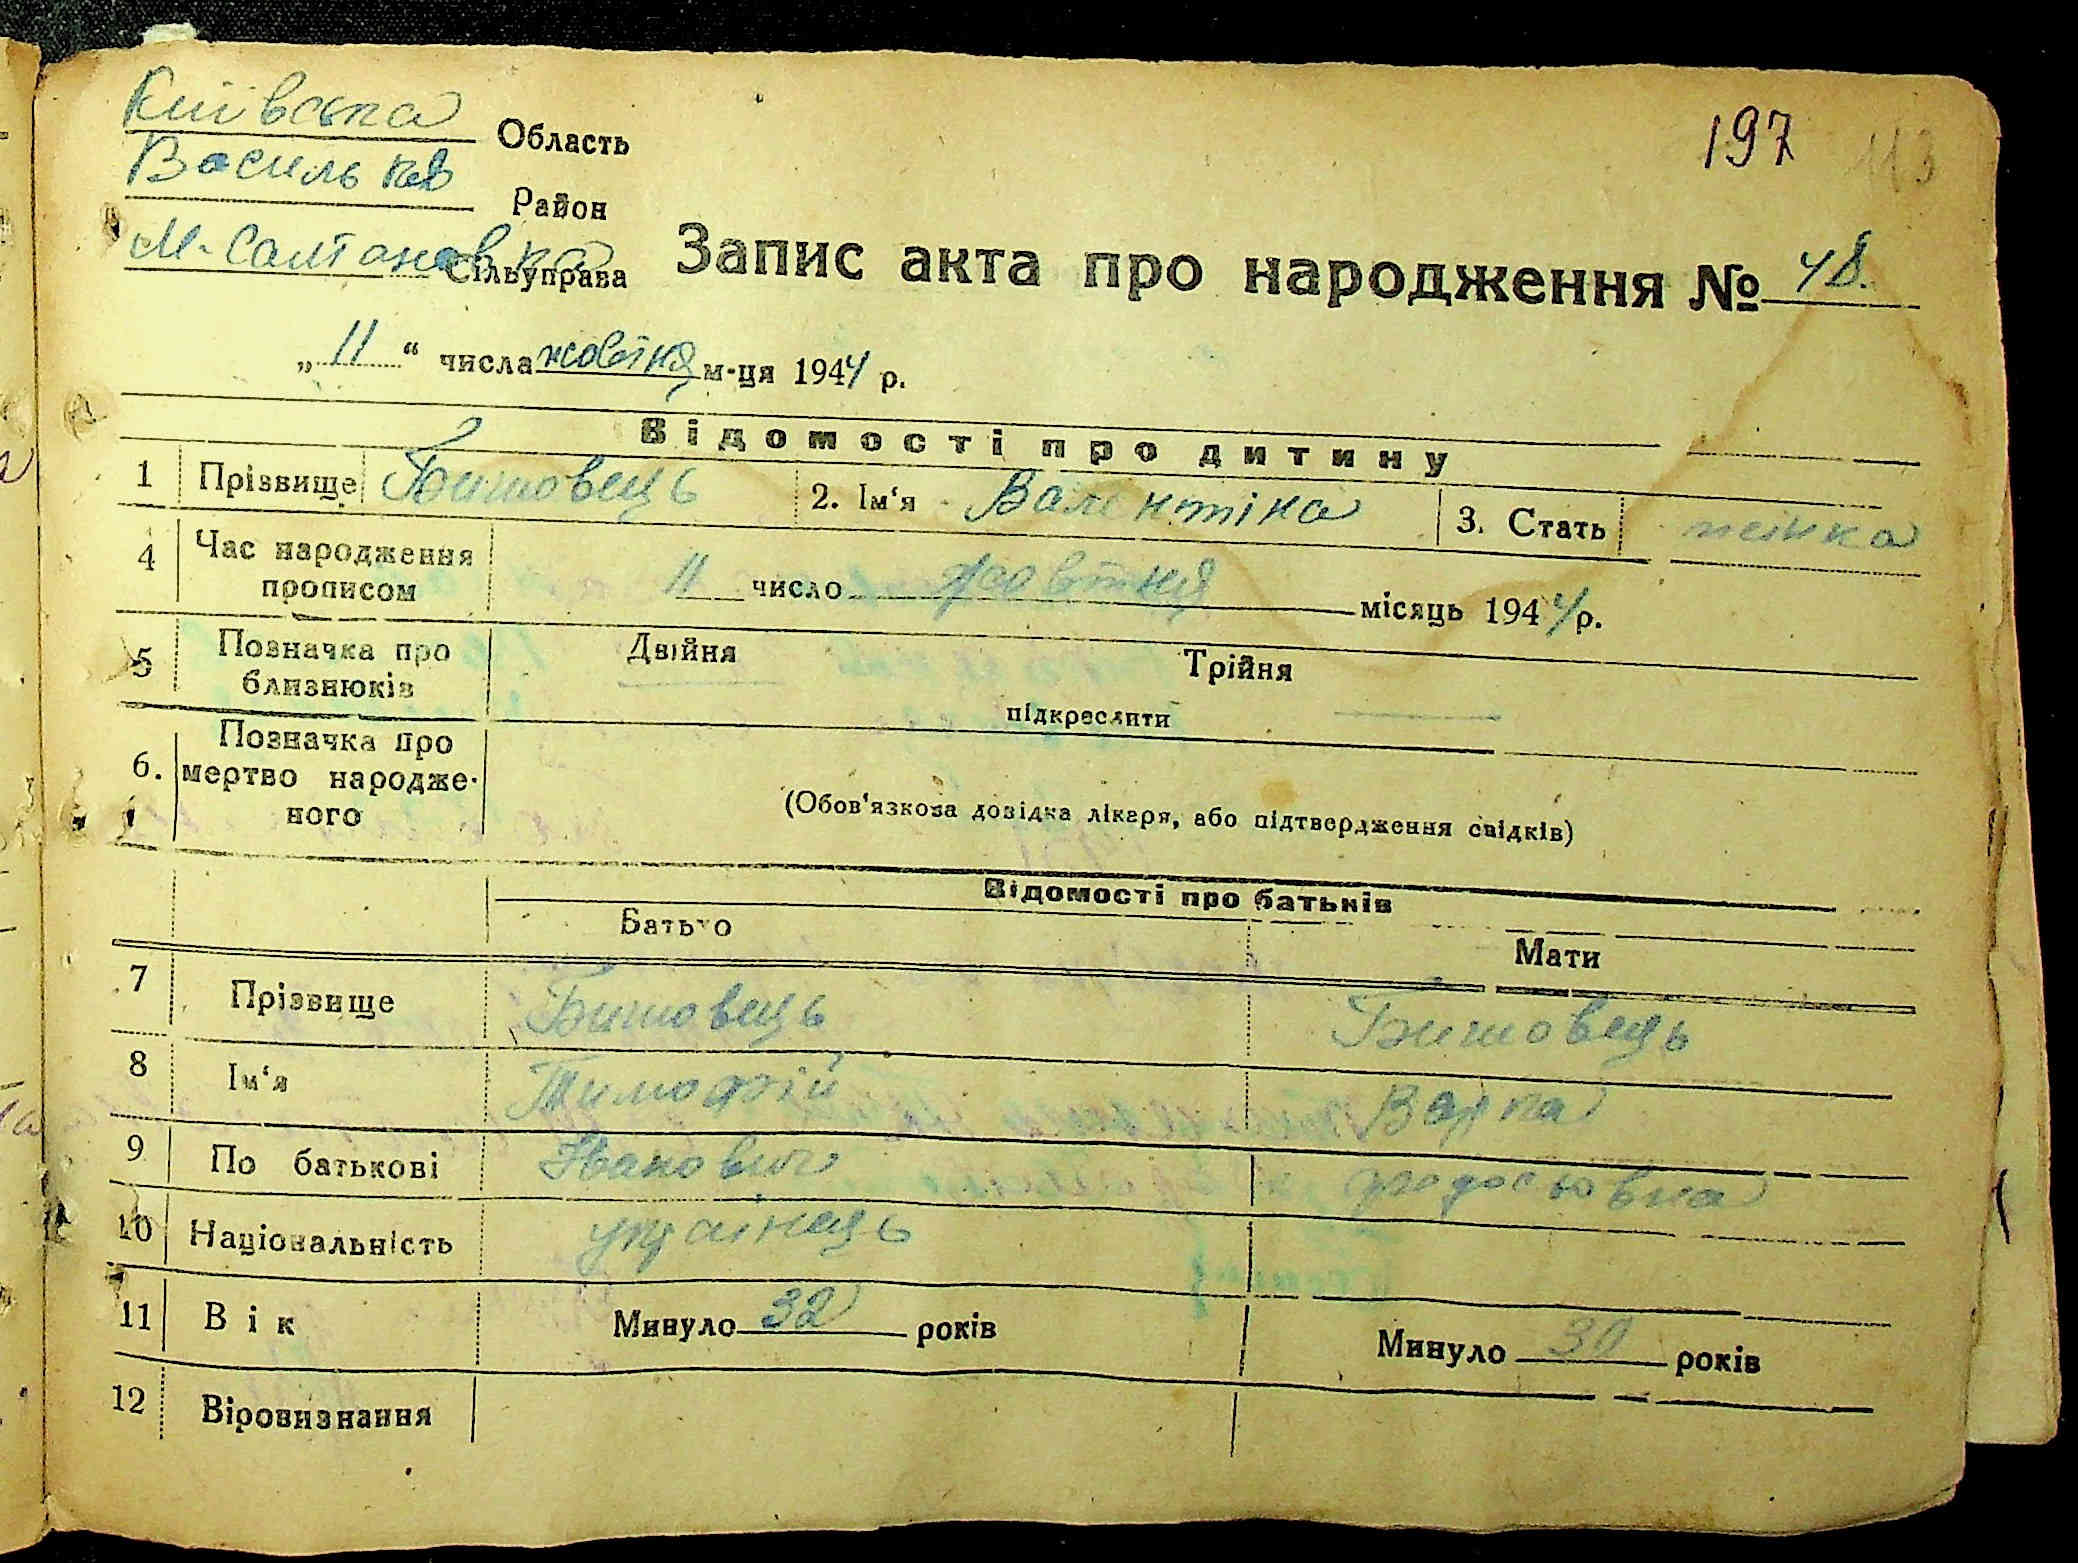 Київська Область
197 113
Васильків Район
М-Салтановка Сільуправа
Запис акта про народження № 48.
„ 11 “ числа жовтня м-ця 1944 р.
Відомості про дитину
1 Прізвище Бишовець 2. Ім‘я Валентіна 3. Стать жінка
4 Час народження прописом 11 число жовтня місяць 1944 р.
5 Позначка про близнюків Двійня Трійня
підкреслити
6. Позначка про мертво народже-
ного (Обов‘язкова довідка лікаря, або підтвердження свідків)
Відомості про батьків
Батько Мати
7 Прізвище Бишовець Бишовець
8 Ім‘я Тимофій Варка
9 По батькові Іванович Федосьовна
10 Національність українець
11 Вік Минуло 32 років Минуло 30 років
12 Віровизнання